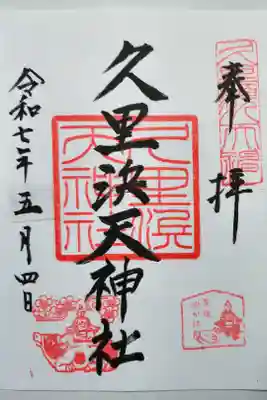 奉拝
久里浜天神社
久里浜
天神社
令和七年五月四日